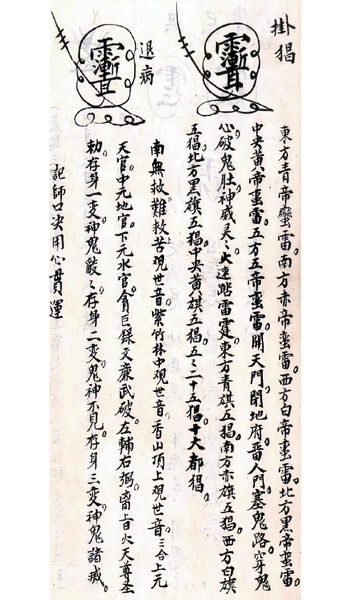 掛猖
東方青帝蠻雷。南方赤帝蛮雷。西方白帝蛮雷。北方黑帝蛮雷。
中央黃帝蛮雷。五方五帝蛮雷。開天門。閉地府。畱人門。塞鬼路。穿鬼
心。破鬼肚。神威灵々。火速踏雷霆。東方青旗五猖。南方赤旗五猖。西方白旗
五猖。北方黑旗五猖。中央黃旗五猖。五々二十五猖。十大都猖。
退病
南無救難救苦观世音。紫竹林中观世音。香山頂上观世音。三合上元
天官。中元地官。下元水官。貪巨祿文廉武破。左輔右弼。留上旨火天尊。
勅存身一变。神鬼敲々。存身二变。鬼神不見。存身三变。神鬼諸滅。
記師口决用心貫運